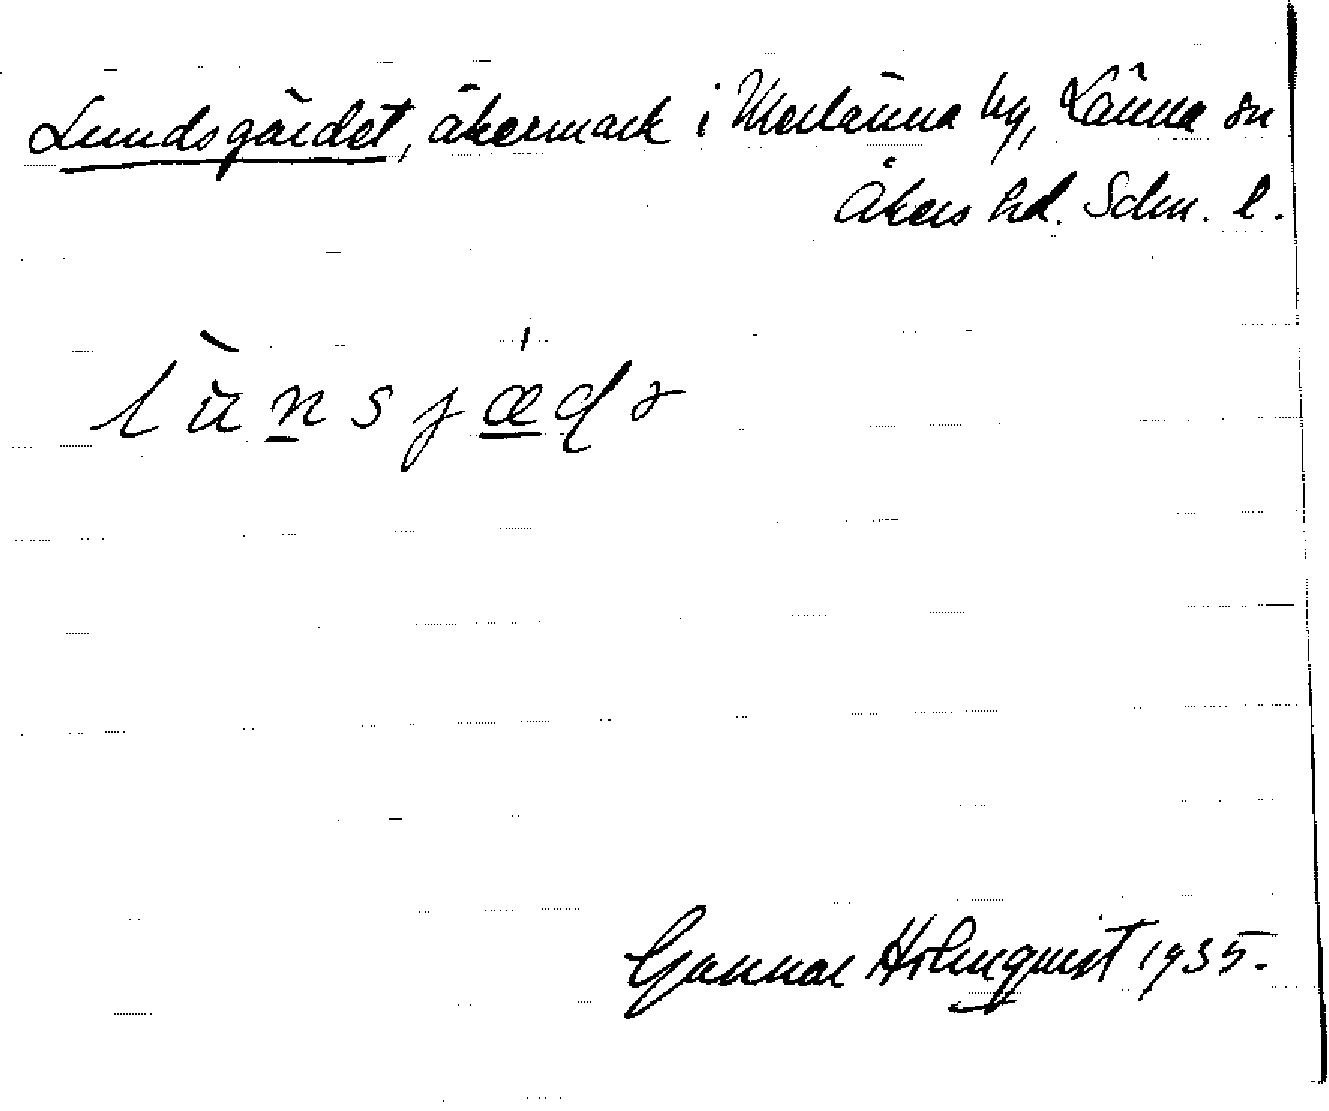 Lundsgärdet, åkermark i Merlänna by, Länna sn
Åkers hd. Sdm. l.
Gunnar Holmquist 1935.